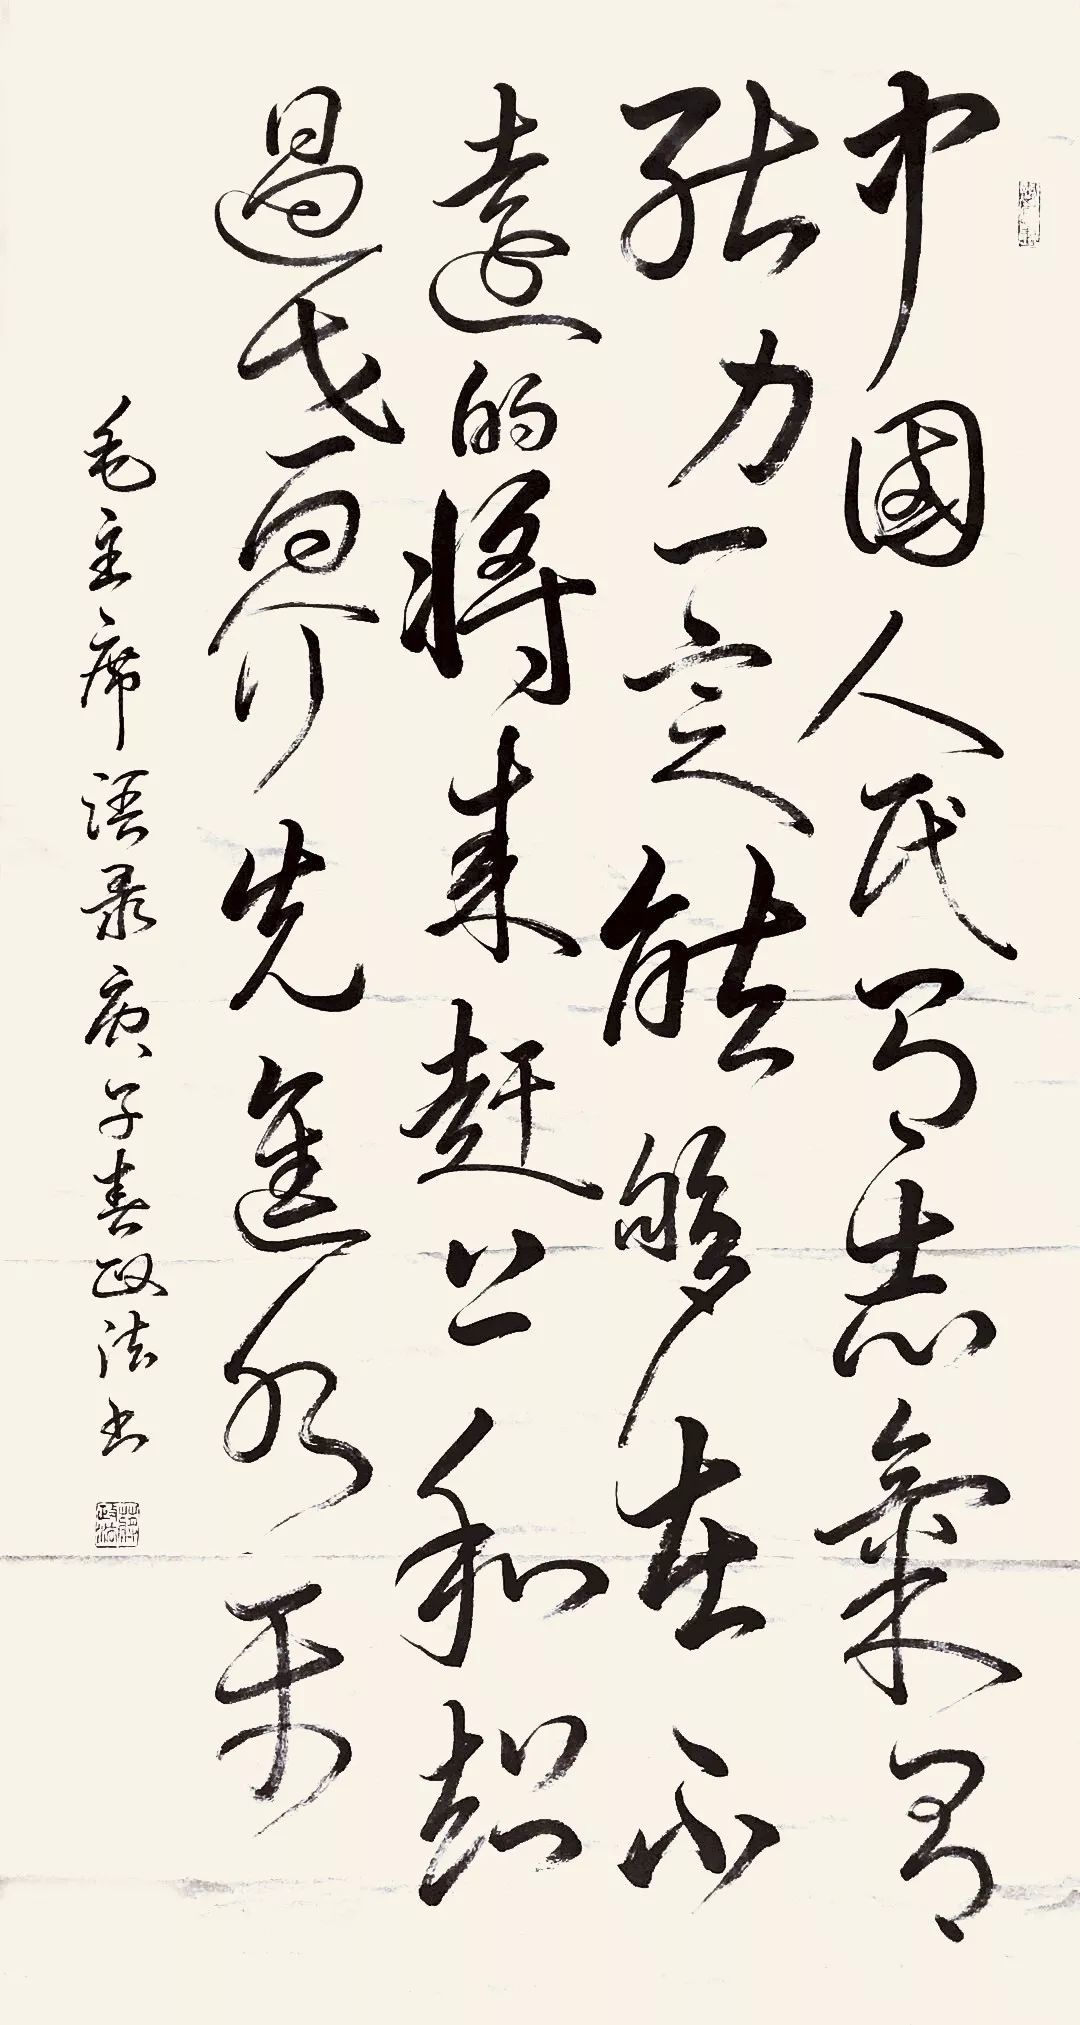 中國人民有志氣有
能力一定能够在不
遠的将来赶上和超
過世界先進水平
毛主席语录庚子春政法书